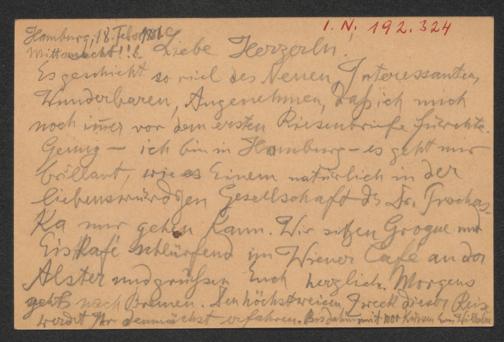 I. N. 192.324
Hamburg, 18. Febr.
Mitternacht!! Liebe Herzerln!
Es geschieht so viel des Neuen, Interessanten,
Wunderbaren, Angenehmen, daß ich mich
noch immer vor dem ersten Riesenbriefe fürchte.
Genug – ich bin in Hamburg – es geht mir
brillant, wie es Einem natürlich in der
liebenswürdigen Gesellschaft d. Dr.
Ka nur gehen kann. Wir sitzen Grogue und
Eiskafé schlürfend im Wiener Café an der
Alster und grüßen Euch herzlich. Morgens
geht's nach Bremen. Den höchstweisen Zweck dieser Reis
werdet Ihr demnächst erfahren. Bis dahin mit